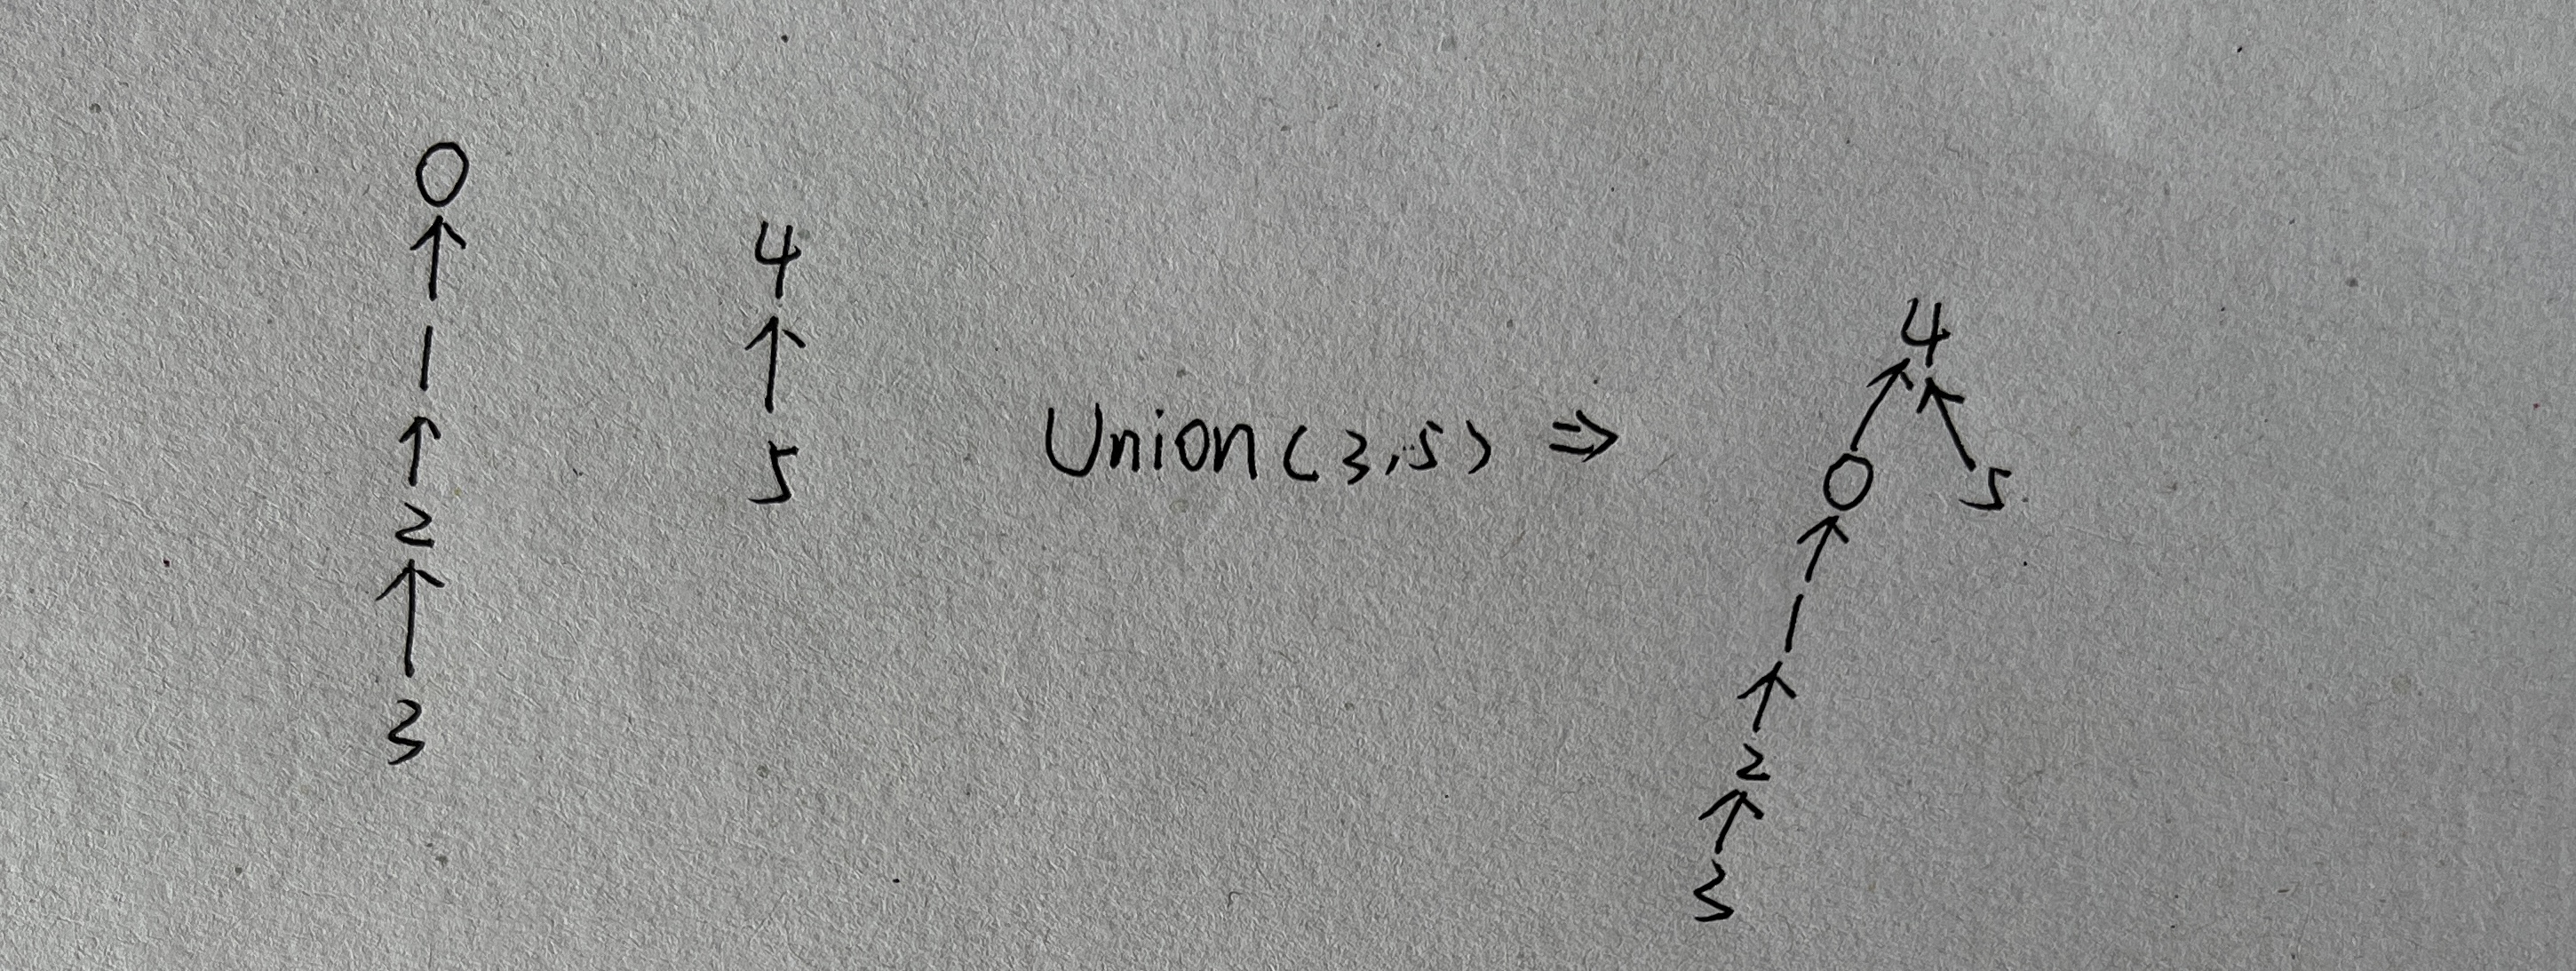 0
↑
1
↑
2
↑
3
4
↑
5
Union(3,5) ⇒
4
0 5
1
2
3